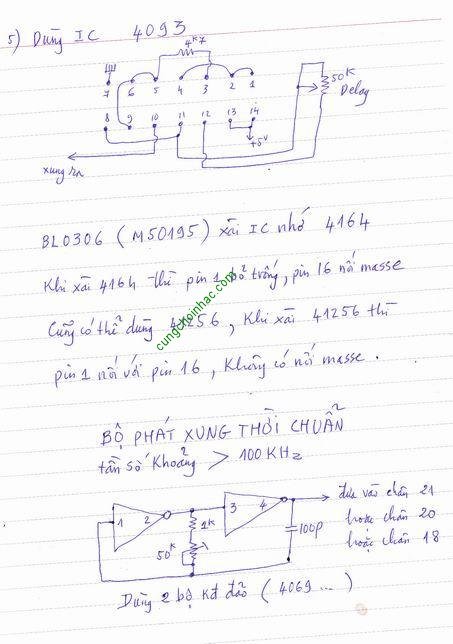 5) Dùng IC 4093
4K7
7 6 5 4 3 2 1
50K
Delay
8 9 10 11 12 13 14
+5V
xung ra
BL0306 (M50195) xài IC nhớ 4164
Khi xài 4164 thì pin 1 bỏ trống, pin 16 nối masse
Cũng có thể dùng 41256, Khi xài 41256 thì
pin 1 nối với pin 16, Không có nối masse.
cungchoinhac.com
BỘ PHÁT XUNG THỜI CHUẨN
tần số Khoảng > 100 KHz
1 2 3 4
1K
50K
100p
đưa vào chân 21
hoặc chân 20
hoặc chân 18
Dùng 2 bộ Kđ đảo (4069...)